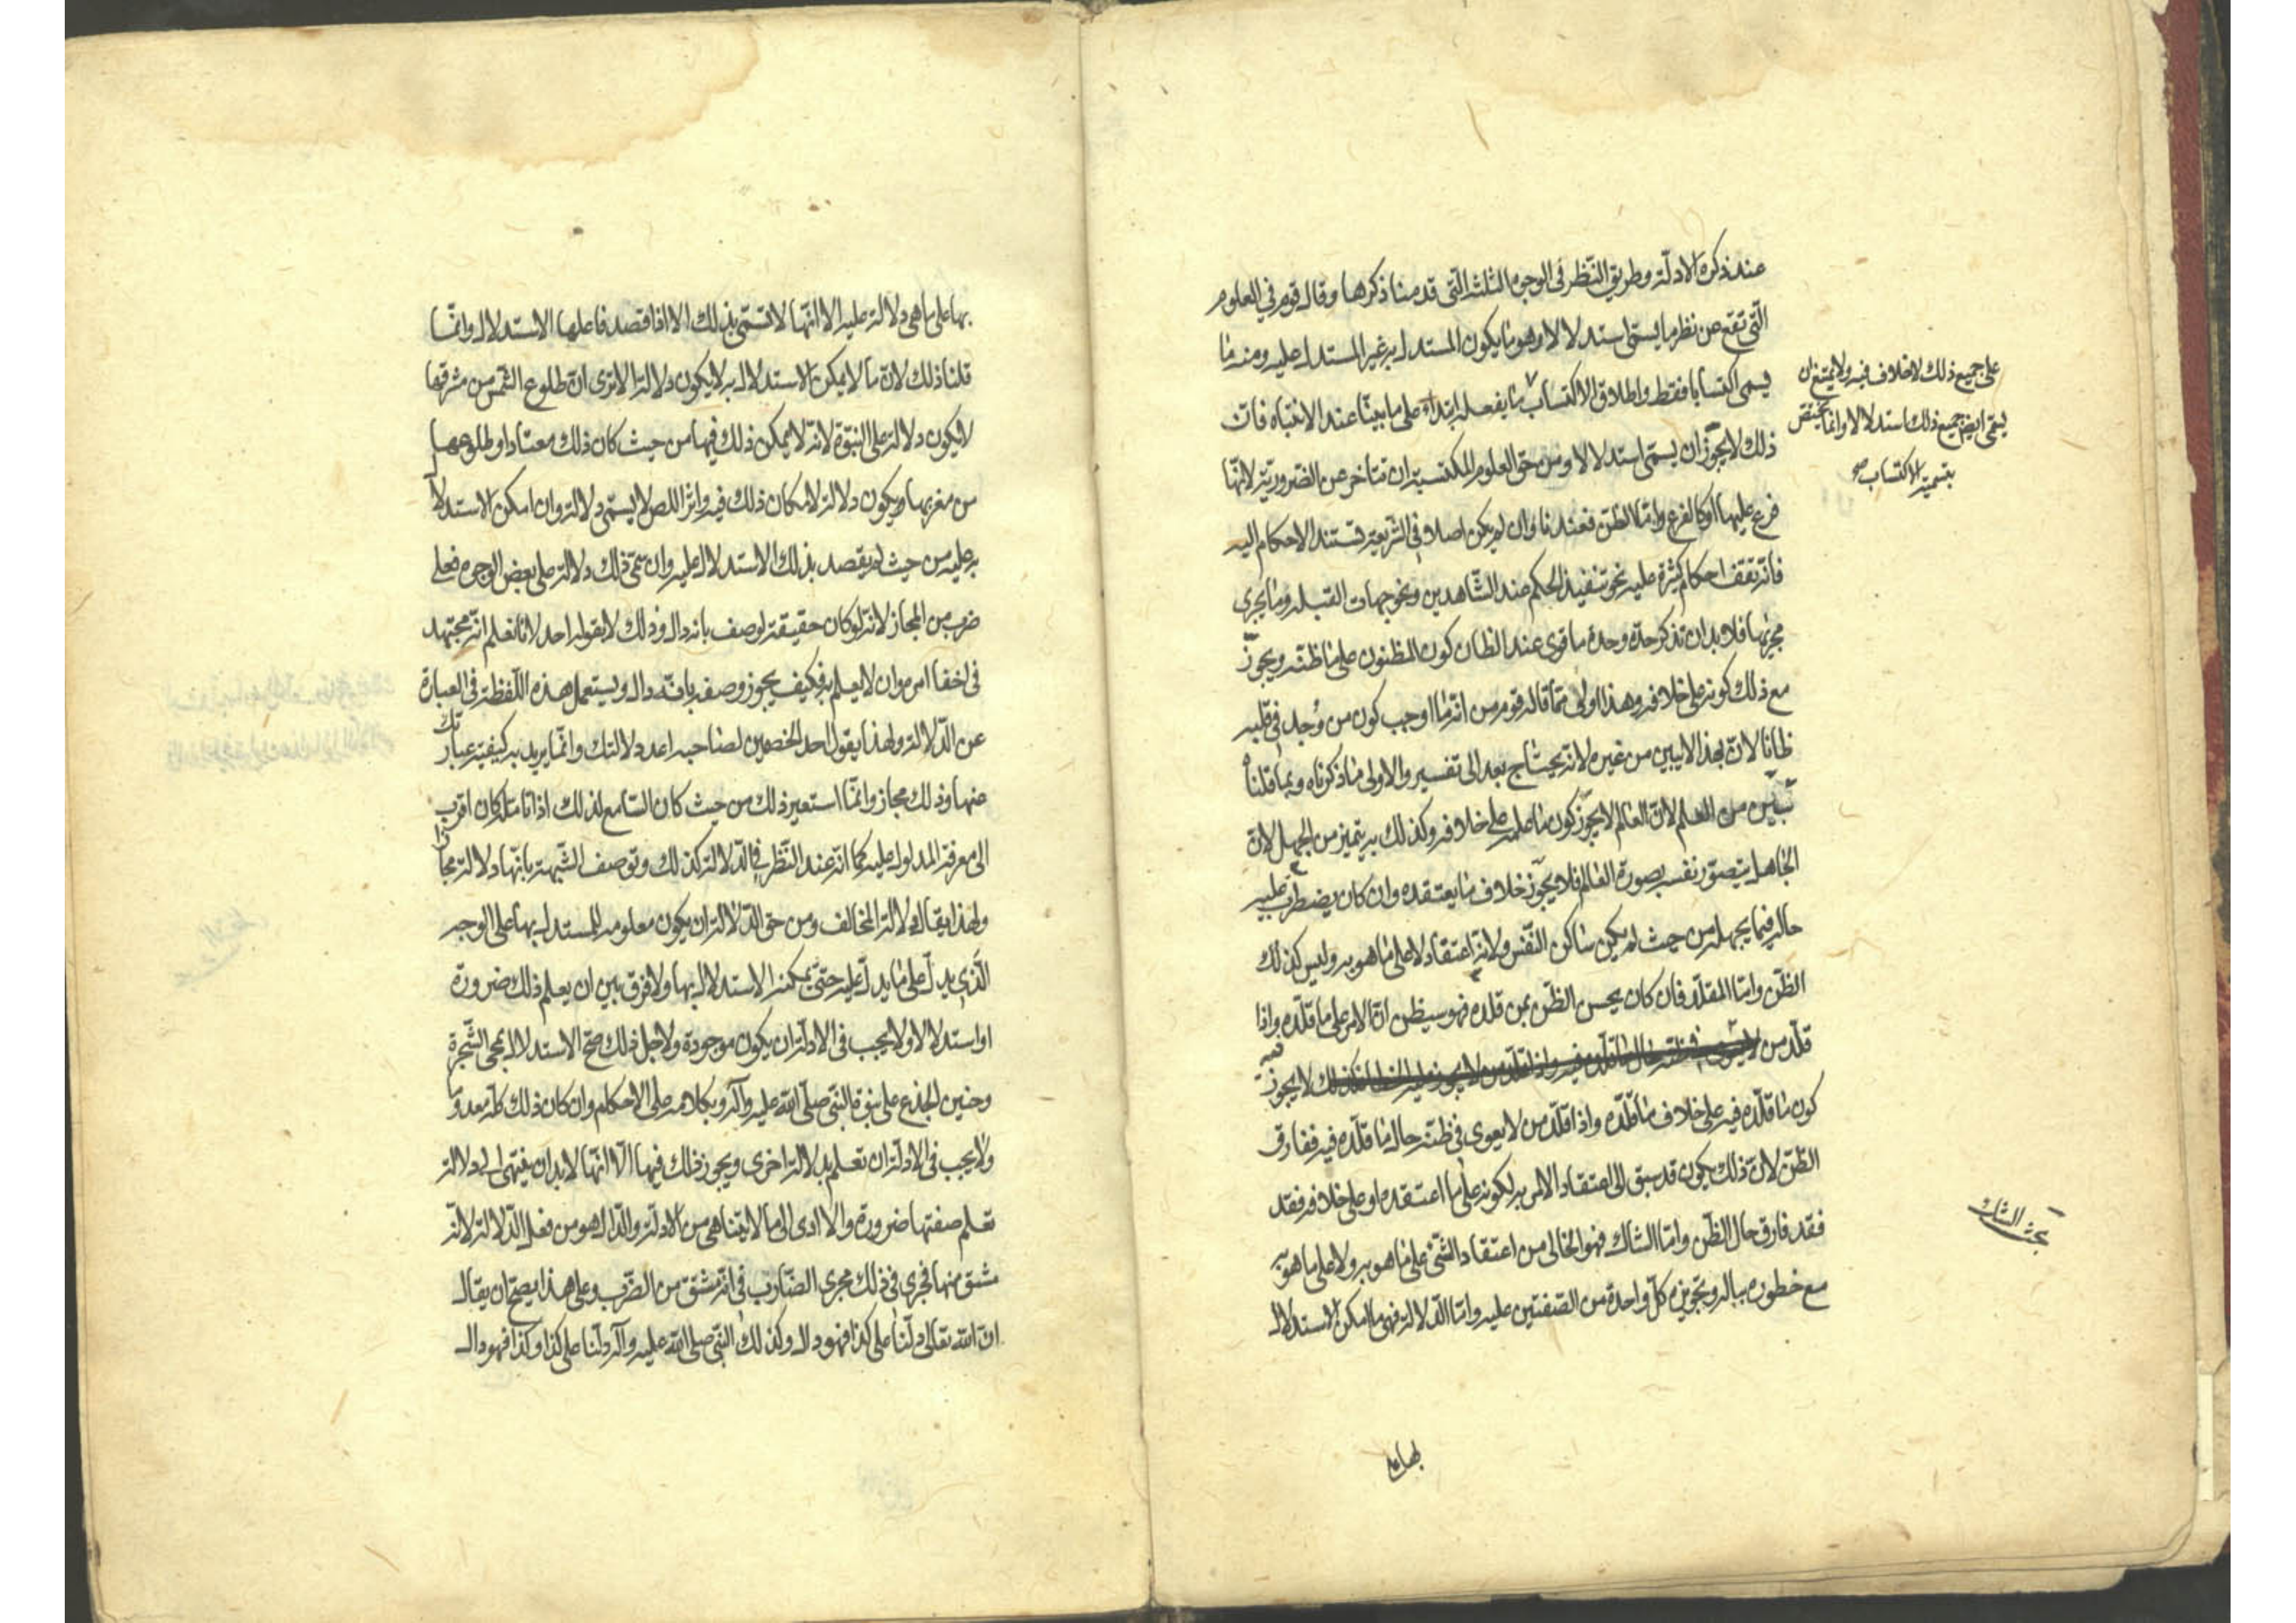 عند ذكره الادلّة وطريق النّظر فى الوجوه الثلثة الّتى قدمنا ذكرها وقال قوم فى العلوم
الّتى تقع عن نظر ما يسمّى استدلالا وهو ما يكون المستدل به غير المستدل عليه ومنه ما
يسمى اكتسابا فقط واطلاق الاكتساب ما يفعله ابتداء على ما بينّا عند الانتباه فان
ذلك لا يجوّز ان يسمّى استدلالا ومن حق العلوم المكتسبة ان تتأخر عن الضروريّة لانّها
فرع عليها او كالفرع وامّا الظن فعندنا وان لم يكن اصلا فى الشّريعة تستند الاحكام اليه
فانّه تقف احكام كثيرة عليه نحو تنفيذ الحكم عند الشّاهدين ونحو جهات القبله وما يجرى
مجريها فلا بد ان تذكر حدّه وحدّه ما قوى عند الظان كون المظنون على ما ظنّه ويجوّز
مع ذلك كونه على خلافه وهذا اولى ممّا قاله قوم من انّه ما اوجب كون من وُجد فى قلبه
ظانّا لان بهذا لا يبين من غيره لانه يحتاج بعد الى تفسير والاولى ما ذكرناه وبما قلناه
تبّين من العلم لان العالم لا يجوّز كون ما علمه على خلافه وكذلك به يتميز من الجهل لان
الجاهل يتصوّر نفسه بصورة العالم فلا يجوّز خلاف ما يعتقده وان كان يضطرب عليه
حاله فيما يجهله من حيث لم يكن ساكن النّفس ولانّه اعتقاد لا على ما هو به وليس كذلك
الظّن وامّا المقلّد فان كان يحسن الظّن بمن قلده فهو سيظن انّ الامر على ما قلّده واذا
قلّد من لا يجوّز عليه الخطأ فكذلك لا يجوّز
كون ما قلّده فيه على خلاف ما قلّده واذا قلّد من لا يعوى فى ظنّه حال ما قلّده فيه ففارق
الظّن لان ذلك يكون قد سبق الى اعتقاد الامر به لكونه على ما اعتقده او على خلافه فقد
فقد فارق حال الظّن وامّا الشاك فهو الخالى من اعتقاد الشّئ على ما هو به ولا على ما هو به
مع خطوره بباله وتجويزه كلّ واحدة من الصّفتين عليه وامّا الدّلالة فهى ما امكن الاستدلال
على جميع ذلك لا خلاف فيه ولا يمتنع ان
يسمّى ايضا جميع ذلك استدلالا وانما يختص
بتسمية الاكتساب صح
بحث الشاك
بها على
بها على ما هى دلالة عليه الا انّها لا تسمّى بذلك الا اذا قصد فاعلها الاستدلال وانمّا
قلنا ذلك لان ما لا يمكن الاستدلال به لا يكون دلالة الا ترى ان طلوع الشّمس من مشرقها
لا يكون دلالة على النبوّة لانّه لا يمكن ذلك فيها من حيث كان ذلك معتادا وطلوعها
من مغربها ويكون دلالة لامكان ذلك فيه واثر اللص لا يسمّى دلالة وان امكن الاستدلال
به عليه من حيث لم يقصد بذلك الاستدلال عليه وان سمّى ذلك دلالة على بعض الوجوه فعلى
ضرب من المجاز لانّه لو كان حقيقة لوصف بانه دال وذلك لا يقوله احد لانا نعلم انّه مجتهد
فى اخفاء امره وان لا يعلم به فكيف يجوز وصفه بانّه دال ويستعمل هذه اللّفظة فى العبارة
عن الدّلالة ولهذا يقول احد الخصمين لصاحبه اعد دلالتك وانمّا يريد به كيفية عبارتك
عنها وذلك مجاز وانمّا استعير ذلك من حيث كان السّامع لذلك اذا تامله كان اقرب
الى معرفة المدلول عليه كما انّه عند النّظر فى الدّلالة كذلك وتوصف الشّبهة بانّها دلالة مجازا
ولهذا يقال دلالة المخالف ومن حق الدّلالة ان يكون معلومه للمستدل بها على الوجه
الّذى يدلّ على ما يدلّ عليه حتىّ يمكنه الاستدلال بها ولا فرق بين ان يعلم ذلك ضرورة
او استدلالا ولا يجب فى الادلّة ان يكون موجودة ولاجل ذلك صحّ الاستدلال بمجى الشّجرة
وحنين الجذع على نبوّة النّبى صلّى الله عليه وآله وبكلامه على الاحكام وان كان ذلك كله معدوما
ولا يجب فى الادلّة ان تعلم بدلالة اخرى ويجوز ذلك فيها الّا انّها لا بد ان ينتهى الى دلالة
تعلم صفتها ضرورة والا ادى الى ما لا يتناهى من الادلّة والدّال هو من فعل الدّلالة لانّه
مشتق منها فجرى فى ذلك مجرى الضّارب فى انّه مشتق من الضّرب وعلى هذا يصحّ ان يقال
انّ الله تعالى دلّنا على كذا فهو دال وكذلك النّبى صلى الله عليه وآله دلّنا على كذا وكذا فهو دال